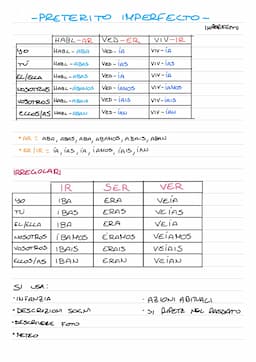 - PRETERITO IMPERFECTO -
IMPERFETTO
HABL-AR VED-ER VIV-IR
YO HABL-ABA VED-ÍA VIV-ÍA
TÚ HABL-ABAS VED-ÍAS VIV-ÍAS
EL/ELLA HABL-ABA VED-ÍA VIV-ÍA
NOSOTROS HABL-ABAMOS VED-ÍAMOS VIV-ÍAMOS
VOSOTROS HABL-ABAIS VED-ÍAIS VIV-ÍAIS
ELLOS/AS HABL-ABAN VED-ÍAN VIV-ÍAN
*AR = ABA, ABAS, ABA, ABAMOS, ABAIS, ABAN
*ER/IR = ÍA, ÍAS, ÍA, ÍAMOS, ÍAIS, ÍAN
IRREGOLARI
IR SER VER
YO IBA ERA VEÍA
TÚ IBAS ERAS VEÍAS
EL/ELLA IBA ERA VEÍA
NOSOTROS ÍBAMOS ÉRAMOS VEÍAMOS
VOSOTROS IBAIS ERAIS VEÍAIS
ELLOS/AS IBAN ERAN VEÍAN
SI USA:
•INFANZIA
•AZIONI ABITUALI
•DESCRIZIONI SOGNI
•SI RIPETE NEL PASSATO
•DESCRIVERE FOTO
•METEO